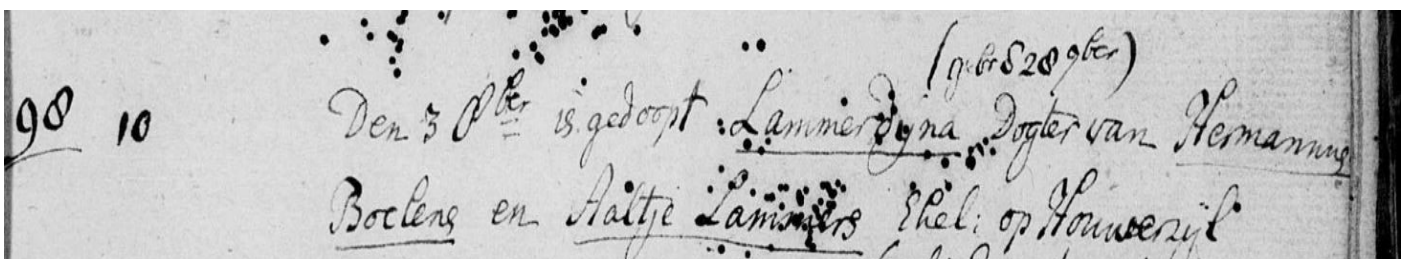 (geb: d 28 9ber)
98 10 Den 3 8ber is gedoopt Lammerdyna Dogter van Hermannus
Boelens en Aaltje Lammers Ehel: op Houwerzyl